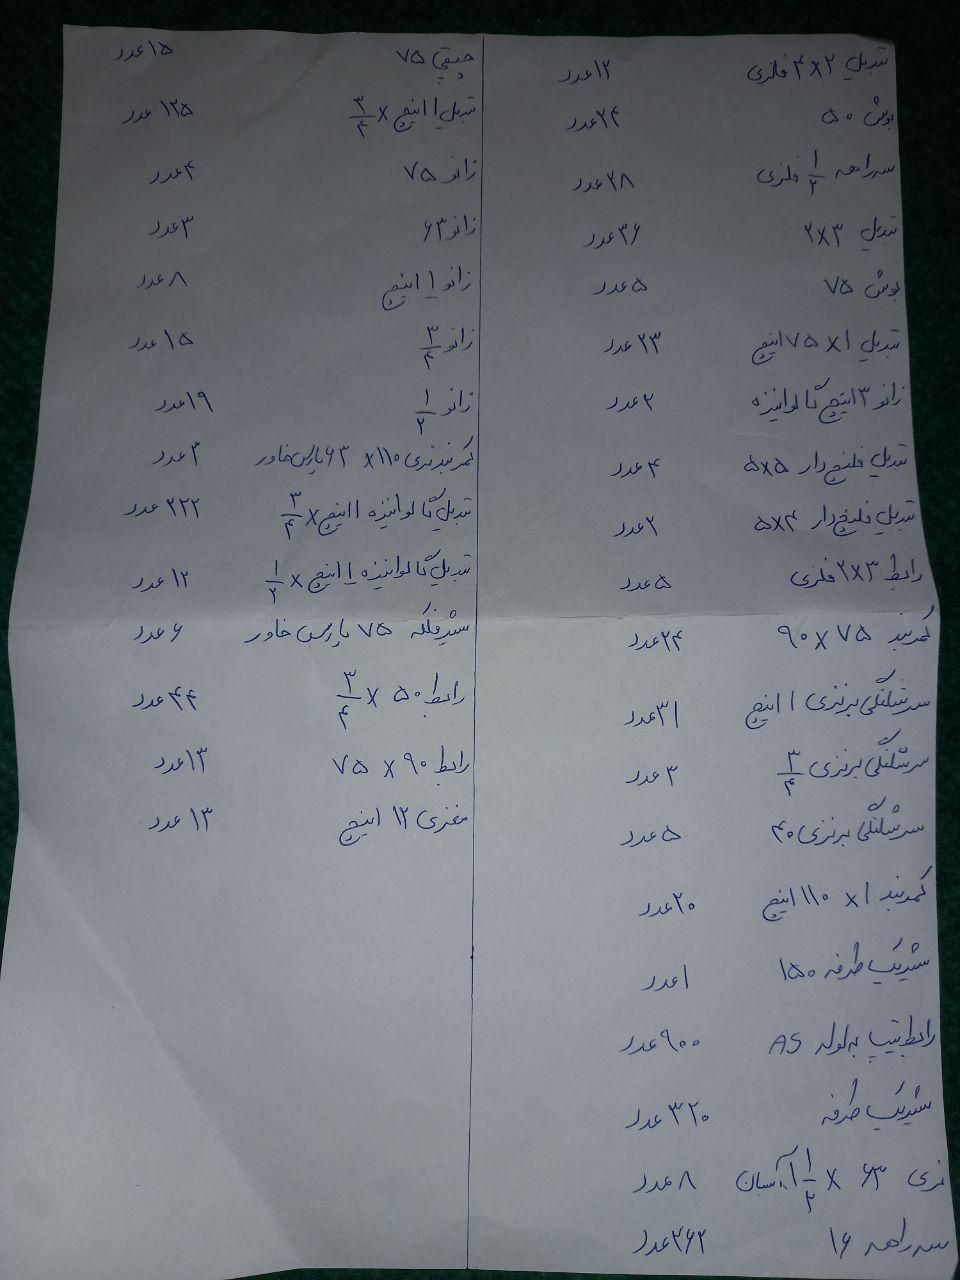 تبدیل ۲×۴ فلزی ۱۲ عدد
بوش ۵۰ ۲۴ عدد
سه راهه ۱/۲ فلزی ۲۸ عدد
تبدیل ۳×۲ ۳۶ عدد
بوش ۷۵ ۵ عدد
تبدیل ۱×۷۵ اینچ ۲۳ عدد
زانو ۳ اینچ گالوانیزه ۲ عدد
تبدیل فلنج دار ۵×۵ ۴ عدد
تبدیل فلنج دار ۴×۵ ۲ عدد
رابط ۳×۲ فلزی ۵ عدد
کمربند ۷۵ × ۹۰ ۲۴ عدد
سرشلنگی برنزی ۱ اینچ ۳۱ عدد
سرشلنگی برنزی ۳/۴ ۳ عدد
سرشلنگی برنزی ۴۰ ۵ عدد
کمربند ۱ × ۱۱۰ اینچ ۲۰ عدد
شیریک طرفه ۱۵۰ ۱ عدد
رابط تیپ به لوله AS ۹۰۰ عدد
شیریک طرفه ۳۲۰ عدد
نری ۶۳ × ۱ ۱/۲ آبسان ۸ عدد
سه راهه ۱۶ ۲۶۲ عدد
چپقی ۷۵ ۱۵ عدد
تبدیل ۱ اینچ × ۳/۴ ۱۲۵ عدد
زانو ۷۵ ۴ عدد
زانو ۶۳ ۳ عدد
زانو ۱ اینچ ۸ عدد
زانو ۳/۴ ۱۵ عدد
زانو ۱/۲ ۱۹ عدد
کمربند نری ۱۱۰ × ۶۳ پارس خاور ۲ عدد
تبدیل گالوانیزه ۱ اینچ × ۳/۴ ۲۲۲ عدد
تبدیل گالوانیزه ۱ اینچ × ۱/۲ ۱۲ عدد
شیرفلکه ۷۵ پارس خاور ۶ عدد
رابط ۵۰ × ۳/۴ ۴۴ عدد
رابط ۹۰ × ۷۵ ۱۳ عدد
مغزی ۱۲ اینچ ۱۳ عدد